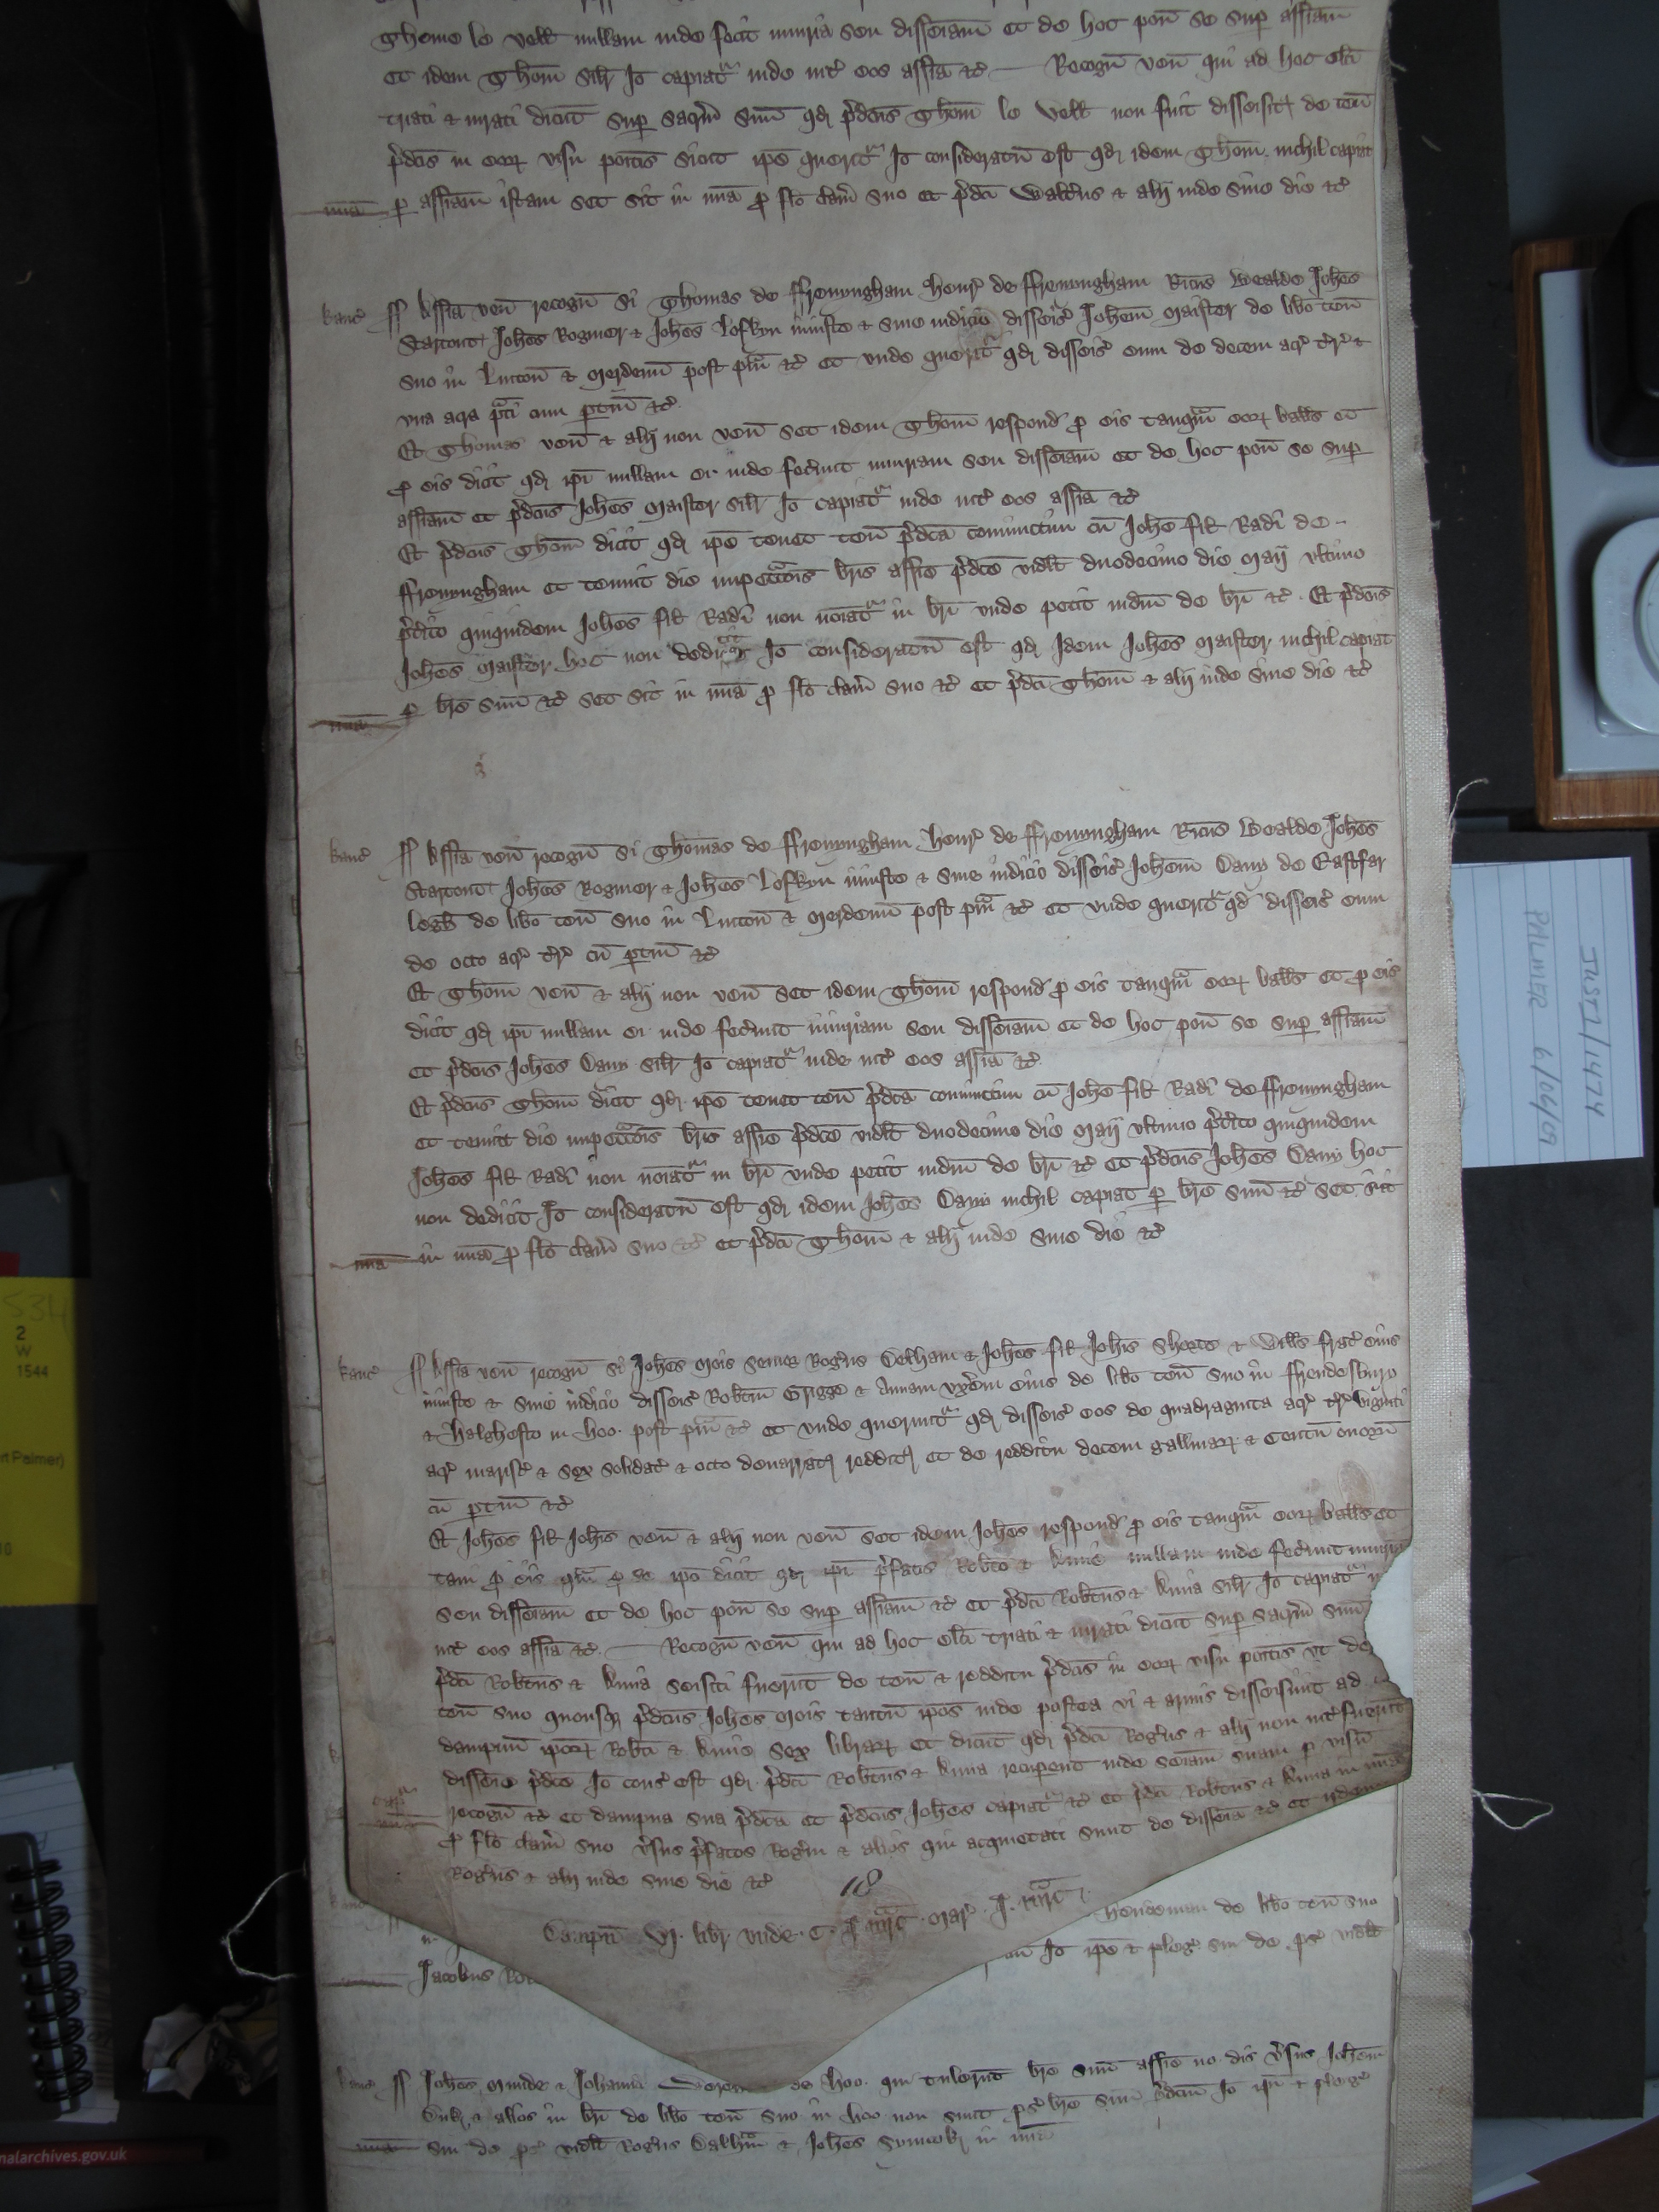 Thome le Vell nullam inde fecit iniuria seu disseiam et de hoc pon se sup assiam
et idem Thom silr Io capiatr inde int eos assia etc Recogn ven qui ad hoc elci
triati & iurati dicut sup sacrm suu qd pdcus Thom le Vell non fuit disseisit de ten
pdcis in eor visu positis sicut ipe querit Io consideratu est qd idem Thom nichil capiat
mia p assiam istam set sit in mia p flo clam suo et pdci Waltus & alij inde sine die etc
kanc ss Assia ven recogn si Thomas de ffrenyngham Henr de ffrenyngham Ricus Wealde Johes
Johes Rogmer & Johes Lofkyn iniuste & sine iudicio disseis Johem Maister de libo ten
suo in Lynton & Merdenn post pm etc et vnde querit qd disseis eum de decem acr terr &
vna acra pati cum ptin etc
Et Thomas ven & alij non ven set idem Thom respond p eis tanqm eor balls et
p eis dicit qd ipi nullam ei inde fecerut iniuriam seu disseiam et de hoc pon se sup
assiam et pdcus Johes Maister silr Io capiatr inde int eos assia etc
Et pdcus Thom dicit qd ipe tenet ten pdca coniunctim cu Johe fil Radi de
ffrenyngham et tenuit die impetcois bris assie pdce vidlt duodecimo die Maij vltimo
pterito quiquidem Johes fil Radi non noiatr in bri vnde petit iudm de bri etc Et pdcus
Johes Maister hoc non Io consideratu est qd Idem Johes Maister nichil capiat
mia p bre suu etc set sit in mia p flo clam suo etc et pdci Thom & alij inde sine die etc
kanc ss Assia ven recogn si Thomas de ffrenyngham Henr de ffrenyngham Ricus Wealde Johes
Johes Rogmer & Johes Lofkyn iniuste & sine iudicio disseis Johem Dany de Eastfar
legh de libo ten suo in Lynton & Merdenn post pm etc et vnde querit qd disseis eum
de octo acr terr cu ptin etc
Et Thom ven & alij non ven set idem Thom respond p eis tanqm eor balls et p eis
dicit qd ipi nullam ei inde fecerut iniuriam seu disseiam et de hoc pon se sup assiam
et pdcus Johes Dany silr Io capiatr inde int eos assia etc
Et pdcus Thom dicit qd ipe tenet ten pdca coniunctim cu Johe fil Radi de ffrenyngham
et tenuit die impetcois bris assie pdce vidlt duodecimo die Maij vltimo pterito quiquidem
Johes fil Radi non noiatr in bri vnde petit iudm de bri etc et pdcus Johes Dany hoc
non dedicit Io consideratu est qd idem Johes Dany nichil capiat p bre suu etc set sit
mia in mia p flo clam suo etc et pdci Thom & alij inde sine die etc
kanc ss Assia ven recogn si Johes Mois Rogus Delham & Johes fil Johis & Wills frat eius
iniuste & sine iudicio disseis Robtum Grigge & Annam vxem eius de libo ten suo in ffrendesbury
& Halghesto in Hoo post pm etc et vnde queruntr qd disseis eos de quadraginta acr terr viginti
acr marisc & sex solidat & octo denarat reddit et de redditu decem gallinar & Centu ouoru
cu ptin etc
Et Johes fil Johis ven & alij non ven set idem Johes respond p eis tanqm eor balls et
tam p eis qm p se ipo dicit qd ipi pfatis Robto & Anne nullam inde fecerut iniuria
seu disseiam et de hoc pon se sup assiam etc et pdci Robtus & Anna silr Io capiatr
int eos assia etc Recogn ven qui ad hoc elci triati & iurati dicut sup sacrm suu
pdci Robtus & Anna seisiti fuerut de ten & redditu pdcis in eor visu positis vt de
ten suo quousq pdcus Johes Mois tantu ipos inde postea vi & armis disseisiuit ad
dampnu ipor Robti & Anne sex librar et dicut qd pdci Rogus & alij non intfuerut
disseie pdce Io cons est qd pdci Robtus & Anna recupent inde seiam suam p visu
recogn etc et dampna sua pdca et pdcus Johes capiatr etc et pdci Robtus & Anna in mia
p flo clam suo vsus pfatos Rogm & alios qui acquietati sunt de disseia etc et ijdem
Rogus & alij inde sine die etc
18
Dampn vj libr vnde C
de libo ten suo
Io ipe & pleg sui de ps vidlt
Jacobus
kanc ss Johes & Johanna de Hoo qui tulerut bre suu assie no dis vsus Johem
& alios in bri de libo ten suo in Hoo non sunt ps bre suu pdcum Io ipi & pleg
mia sui de ps vidlt Rogus Dalham & Johes in mia
JUST1/1474
PALMER 6/04/09
534
2
W
1544
rt Palmer)
nalarchives.gov.uk